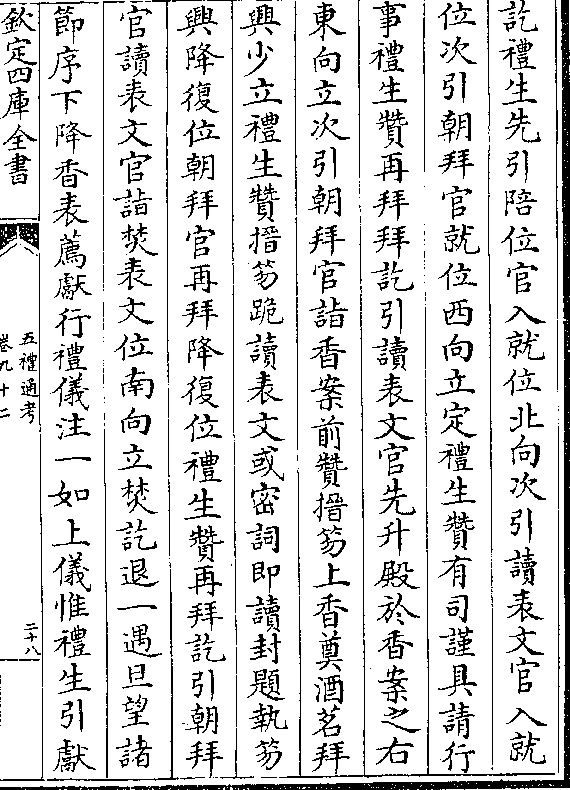 訖禮生先引陪位官入就位北向次引讀表文官入就
位次引朝拜官就位西向立定禮生贊有司謹具請行
事禮生贊再拜拜訖引讀表文官先升殿於香案之右
東向立次引朝拜官詣香案前贊搢笏上香奠酒茗拜
興少立禮生贊搢笏跪讀表文或密詞即讀封題執笏
興降復位朝拜官再拜降復位禮生贊再拜訖引朝拜
官讀表文官詣焚表文位南向立焚訖退一遇旦望諸
節序下降香表薦獻行禮儀注一如上儀惟禮生引獻
欽定四庫全書
五禮通考
卷九十二
二十八